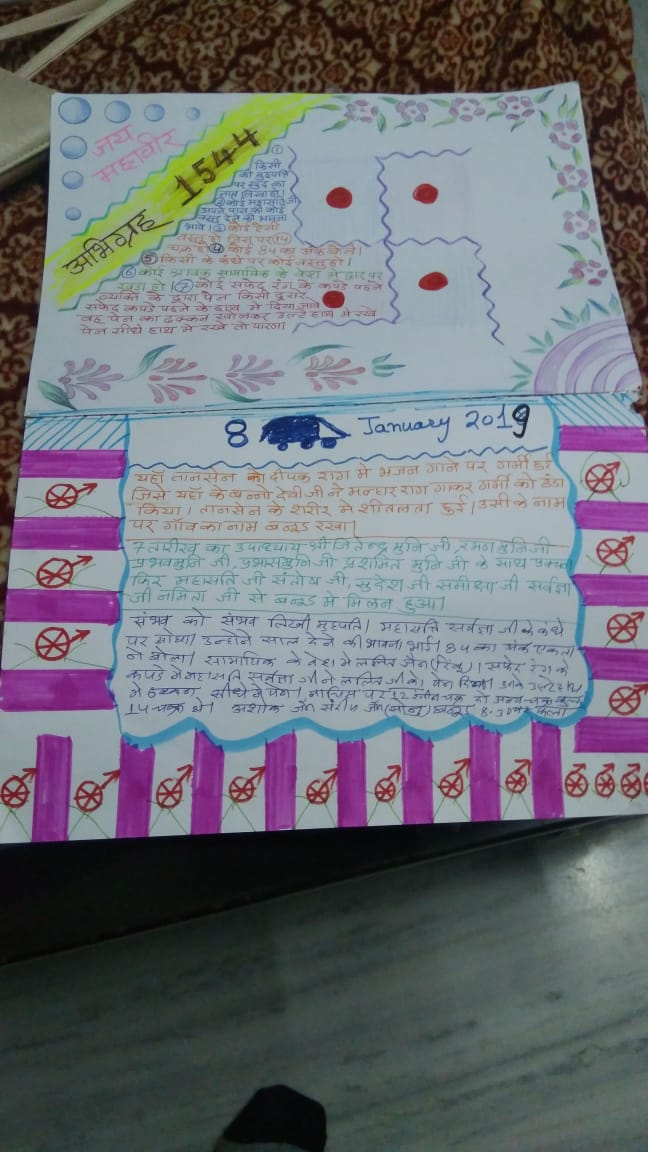 जय
महावीर
अभिग्रह 1544
① किसी
की मुहपति
पर खुद का
नाम लिखा हो।
② कोई महासाती जी
अपने पास की कोई
वस्तु देने की भावना
भावे। ③ कोई ऐसी
वस्तु हो जिस पर 14
चक्र हो ④ कोई 84 का अंक बोले।
⑤ किसी के कंधे पर कोई वस्तु हो।
⑥ कोई श्रावक सामायिक के वेश में द्वार पर
खड़ा हो। ⑦ कोई सफेद रंग के कपड़े पहने
व्यक्ति के द्वारा पेन किसी दूसरे
सफेद कपड़े पहने के हाथ में दिया जावे
वह पेन का ढक्कन खोलकर उल्टे हाथ में रखे
पेन सीधे हाथ में रखे तो पारणा।
8 January 2019
यहाँ तानसेन के दीपक राग में भजन गाने पर गर्मी हुई
जिसे यहाँ के बन्नो देवी जी ने मल्हार राग गाकर गर्मी को ठंडा
किया। तानसेन के शरीर में शीतलता हुई। उसी के नाम
पर गाँव का नाम बनूड रखा।
7 तारीख को उपाध्याय श्री जितेन्द्र मुनि जी, रमण मुनि जी
प्रभव मुनि जी, प्रशमित मुनि जी के साथ
फिर महासति जी संतोष जी, सुदेश जी समीक्षा जी सर्वज्ञा
जी नमिता जी से बनूड में मिलन हुआ।
संभव को संभव लिखी मुहपति। महासति सर्वज्ञा जी के कंधे
पर उन्होंने साल देने की भावना भाई। 84 का अंक एकता
ने बोला। सामायिक के वेश में ललित जैन (टिंकू)। सफेद रंग के
कपड़े में महासति सर्वज्ञा जी ने ललित जी को पेन दिया। उनके उल्टे हाथ
में ढक्कन सीधे में पेन। पर 12 चक्र दो अन्य चक्र कुल
14 चक्र थे। अशोक जैन जैन